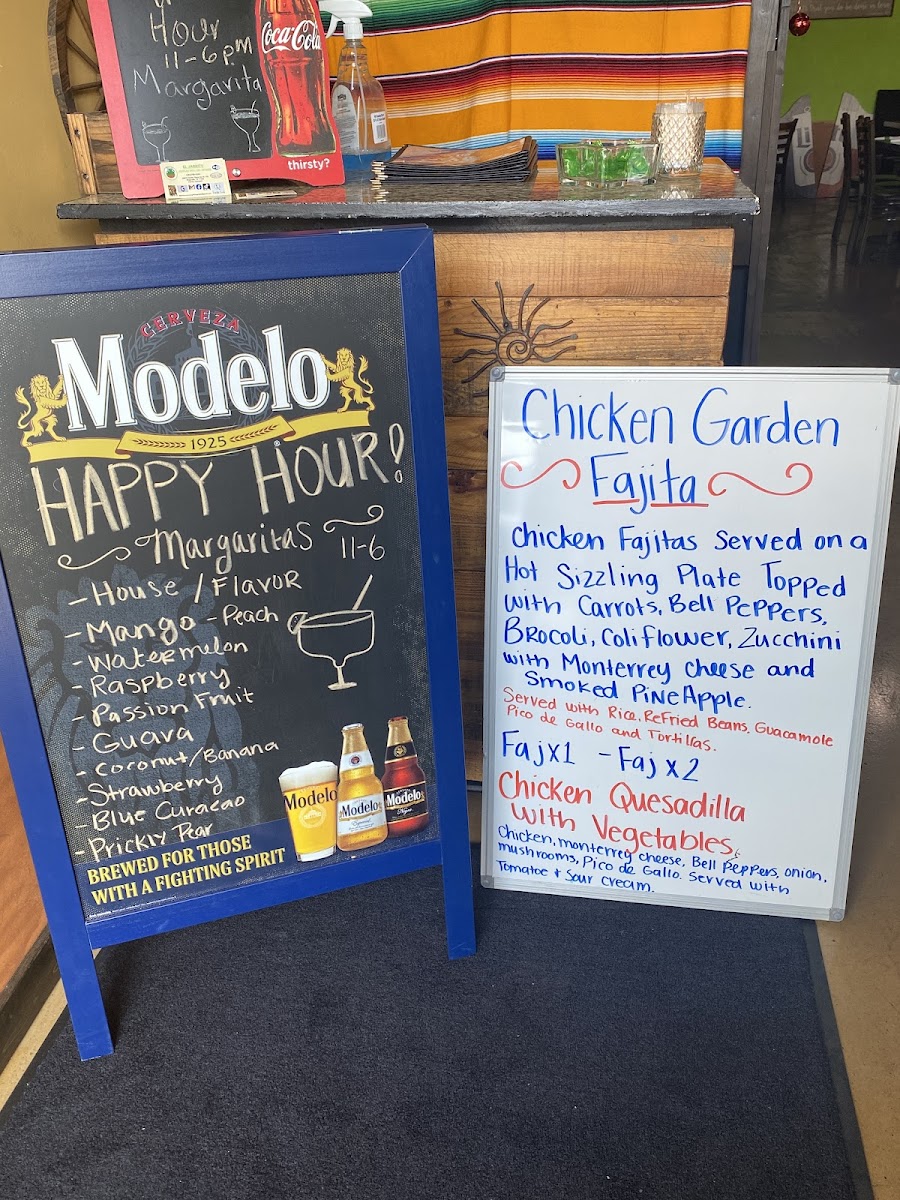 Hour
11-6pm
Margarita
Coca-Cola
thirsty?
CERVEZA
Modelo
1925
HAPPY HOUR!
Margaritas 11-6
- House / Flavor
- Mango - Peach
- Watermelon
- Raspberry
- Passion Fruit
- Guava
- Coconut/Banana
- Strawberry
- Blue Curacao
- Prickly Pear
Modelo
Modelo
Modelo
BREWED FOR THOSE
WITH A FIGHTING SPIRIT
Chicken Garden
Fajita
Chicken Fajitas Served on a
Hot Sizzling Plate Topped
with Carrots, Bell Peppers,
Brocoli, Coliflower, Zucchini
with Monterrey cheese and
Smoked PineApple.
Served with Rice, Refried Beans, Guacamole
Pico de Gallo and Tortillas.
Fajx1 - Fajx2
Chicken Quesadilla
with Vegetables.
Chicken, monterrey cheese, Bell Peppers, onion,
mushrooms, Pico de Gallo. Served with
Tomatoe + Sour cream.